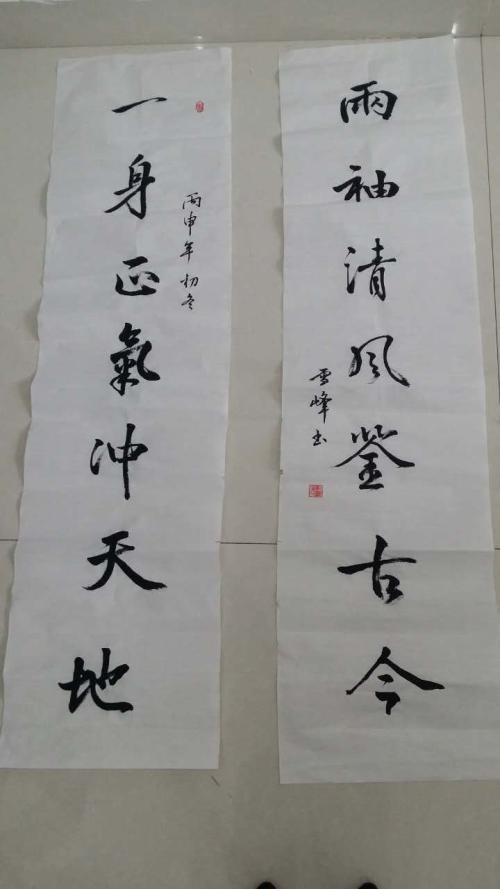 一身正氣冲天地
丙申年初冬
兩袖清风鉴古今
雪峰书